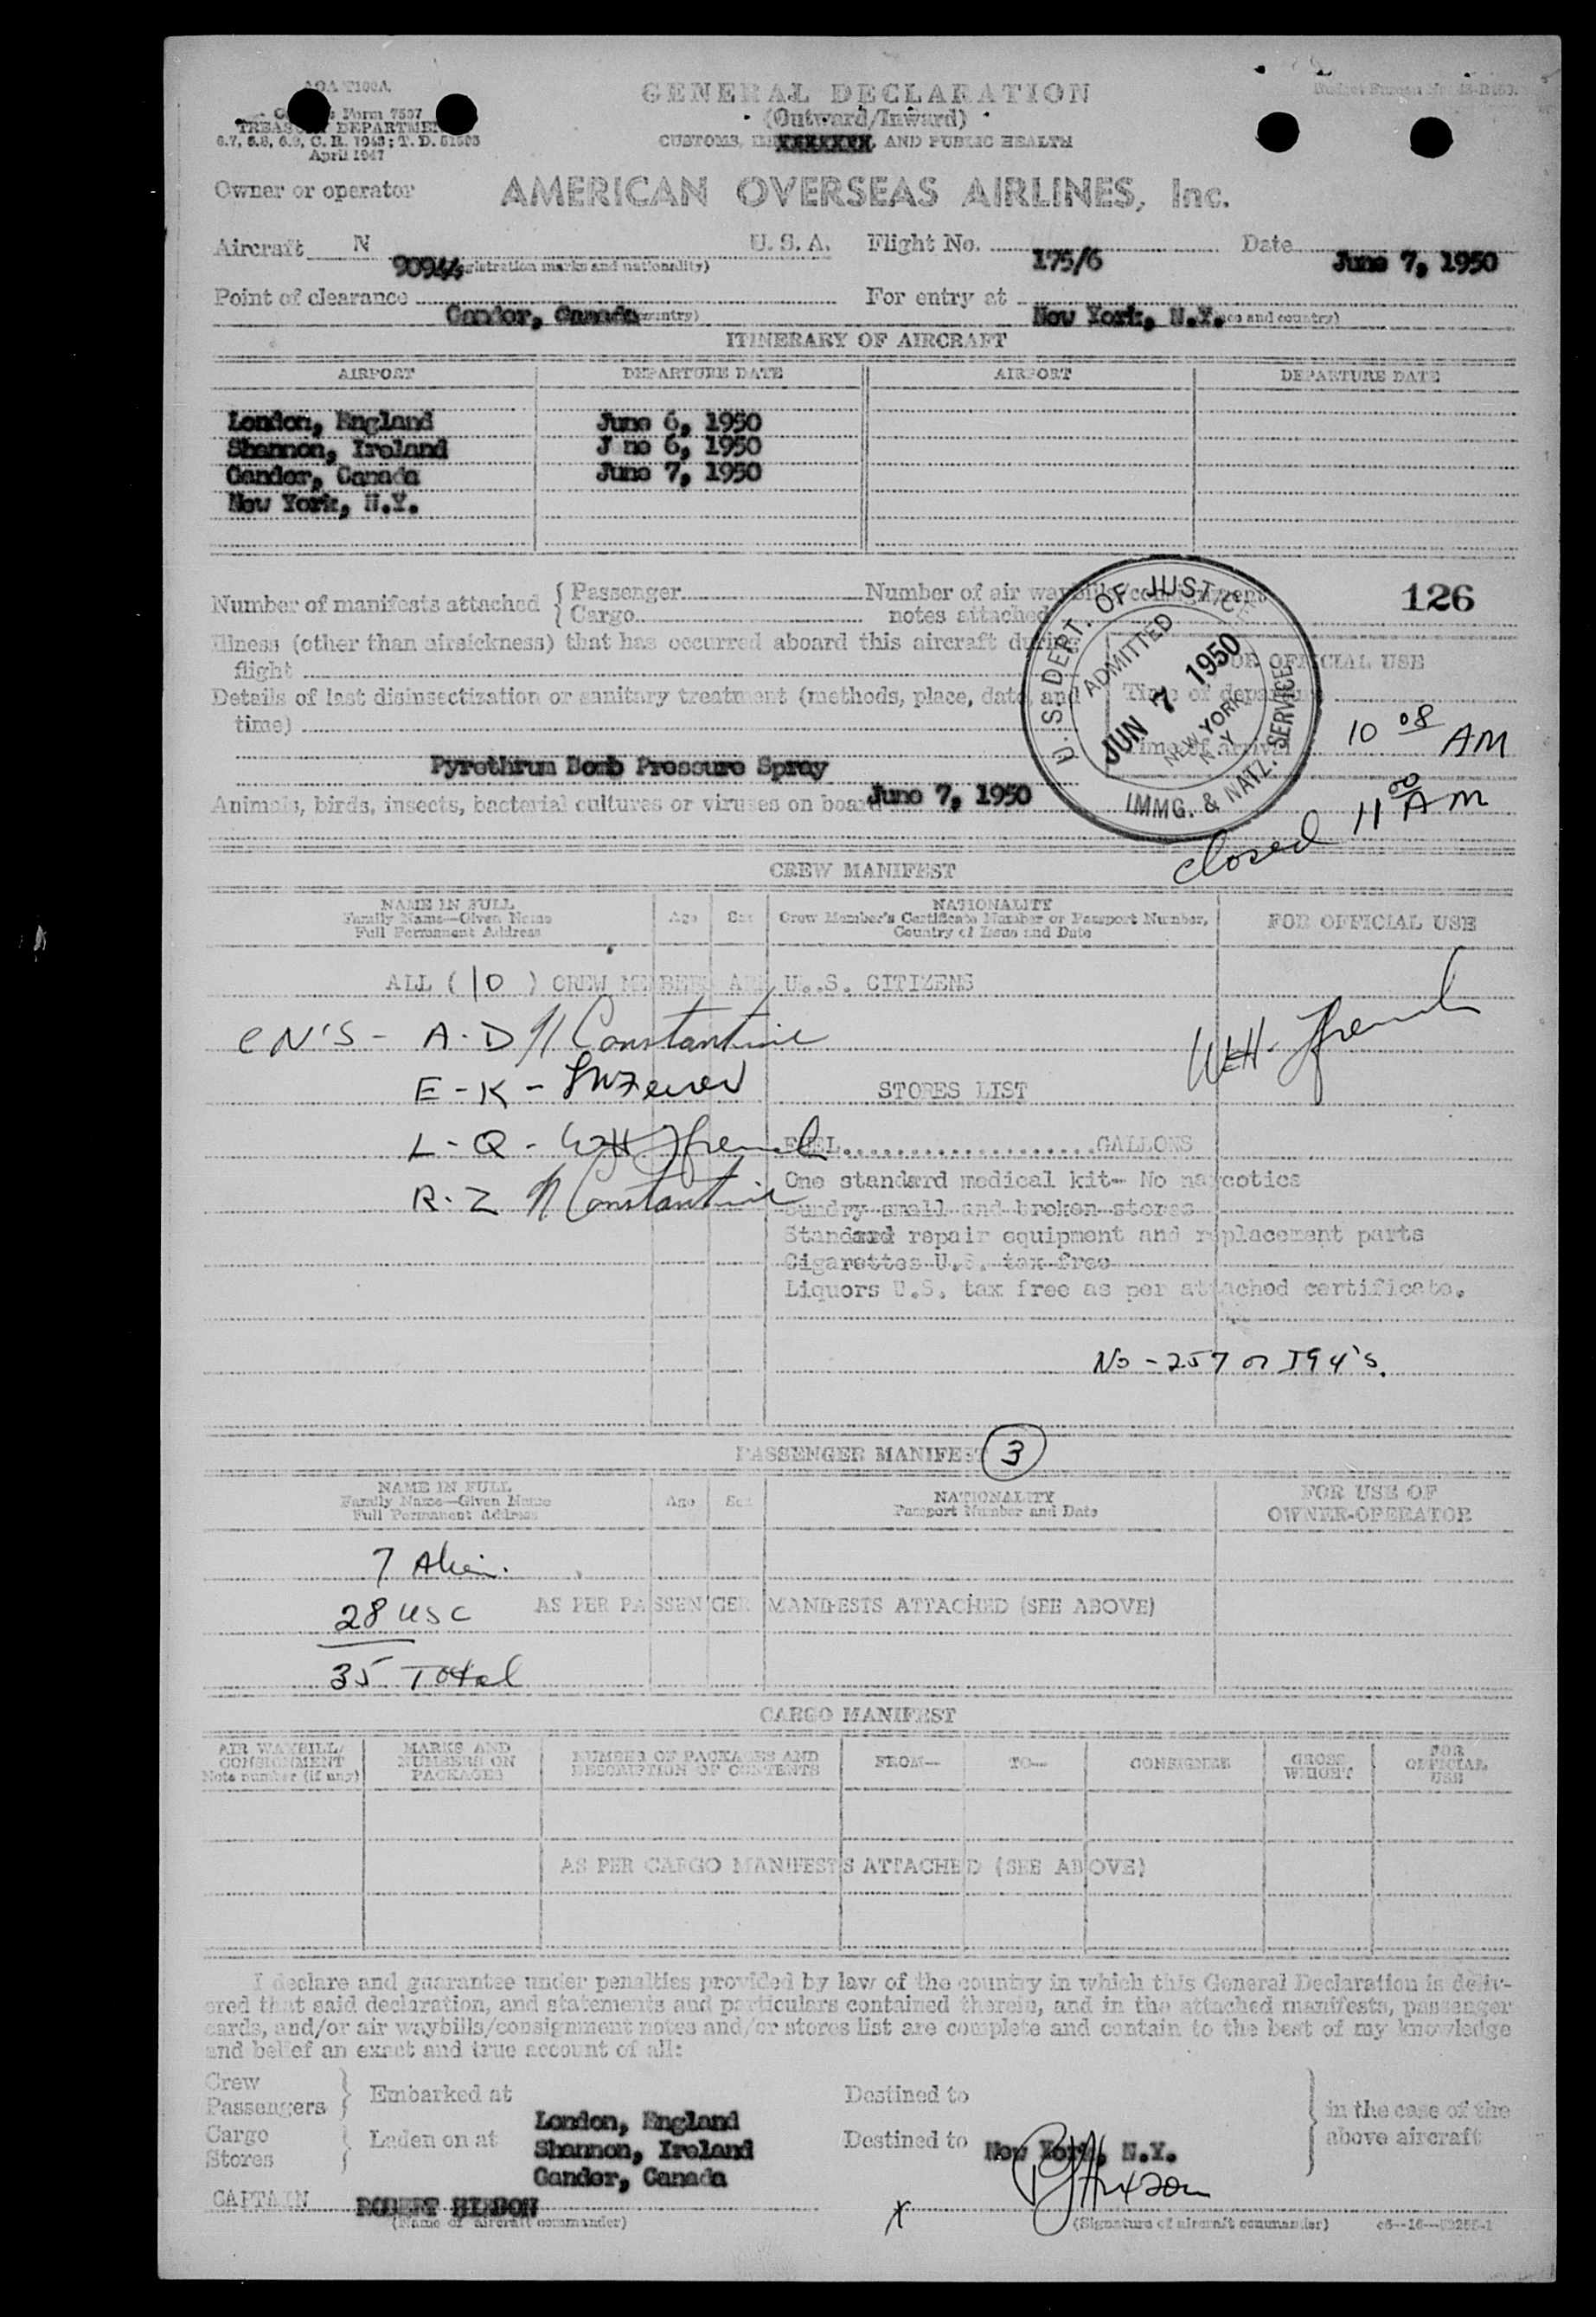 AOA T100A
Form 7507
TREASURY DEPARTMENT
6.7, 6.8, 6.9, C. R. 1943; T. D. 51505
April 1947
GENERAL DECLARATION
(Outward/Inward)
CUSTOMS, AND PUBLIC HEALTH
Owner or operator AMERICAN OVERSEAS AIRLINES, Inc.
Aircraft N 90944 U. S. A. Flight No. 175/6 Date June 7, 1950
(Registration marks and nationality)
Point of clearance Gander, Canada For entry at New York, N.Y.
ITINERARY OF AIRCRAFT
AIRPORT DEPARTURE DATE AIRPORT DEPARTURE DATE
London, England June 6, 1950
Shannon, Ireland J ne 6, 1950
Gander, Canada June 7, 1950
New York, N.Y.
Number of manifests attached { Passenger Number of air waybills/consignment
Cargo notes attached
126
Illness (other than airsickness) that has occurred aboard this aircraft during
flight
FOR OFFICIAL USE
Details of last disinsectization or sanitary treatment (methods, place, date, and
time)
Time of departure
Time of arrival 10 08 AM
U. S. DEPT. OF JUSTICE
ADMITTED
JUN 7 1950
NEW YORK, N.Y.
IMMG. & NATZ. SERVICE
Pyrethrum Bomb Pressure Spray
June 7, 1950
Animals, birds, insects, bacterial cultures or viruses on board
closed 11 00 AM
CREW MANIFEST
NAME IN FULL
Family Name—Given Name
Full Permanent Address
Age Sex
NATIONALITY
Crew Member's Certificate Number or Passport Number,
Country of Issue and Date
FOR OFFICIAL USE
ALL (10) CREW MEMBERS ARE U.S. CITIZENS
CN'S - A-D N Constantine
WH French
E-K -
STORES LIST
L-Q - WH French
FUEL....................GALLONS
R-Z N Constantine
One standard medical kit- No narcotics
Sundry small and broken stores
Standard repair equipment and replacement parts
Cigarettes U.S. tax free
Liquors U.S. tax free as per attached certificate.
No - 257 or I94's.
PASSENGER MANIFEST 3
NAME IN FULL
Family Name—Given Name
Full Permanent Address
Age Sex
NATIONALITY
Passport Number and Date
FOR USE OF
OWNER-OPERATOR
7 Alien.
28 USC AS PER PASSENGER MANIFESTS ATTACHED (SEE ABOVE)
35 Total
CARGO MANIFEST
AIR WAYBILL/
CONSIGNMENT
Note number (if any)
MARKS AND
NUMBERS ON
PACKAGES
NUMBER OF PACKAGES AND
DESCRIPTION OF CONTENTS
FROM— TO— CONSIGNEE
GROSS
WEIGHT
FOR
OFFICIAL
USE
AS PER CARGO MANIFESTS ATTACHED (SEE ABOVE)
I declare and guarantee under penalties provided by law of the country in which this General Declaration is deliv-
ered that said declaration, and statements and particulars contained therein, and in the attached manifests, passenger
cards, and/or air waybills/consignment notes and/or stores list are complete and contain to the best of my knowledge
and belief an exact and true account of all:
Crew
Passengers } Embarked at Destined to
Cargo
Stores } Laden on at Destined to New York, N.Y.
London, England
Shannon, Ireland
Gander, Canada
in the case of the
above aircraft
CAPTAIN ROBERT HIXSON x RJ Hixson
(Name of aircraft commander) (Signature of aircraft commander)